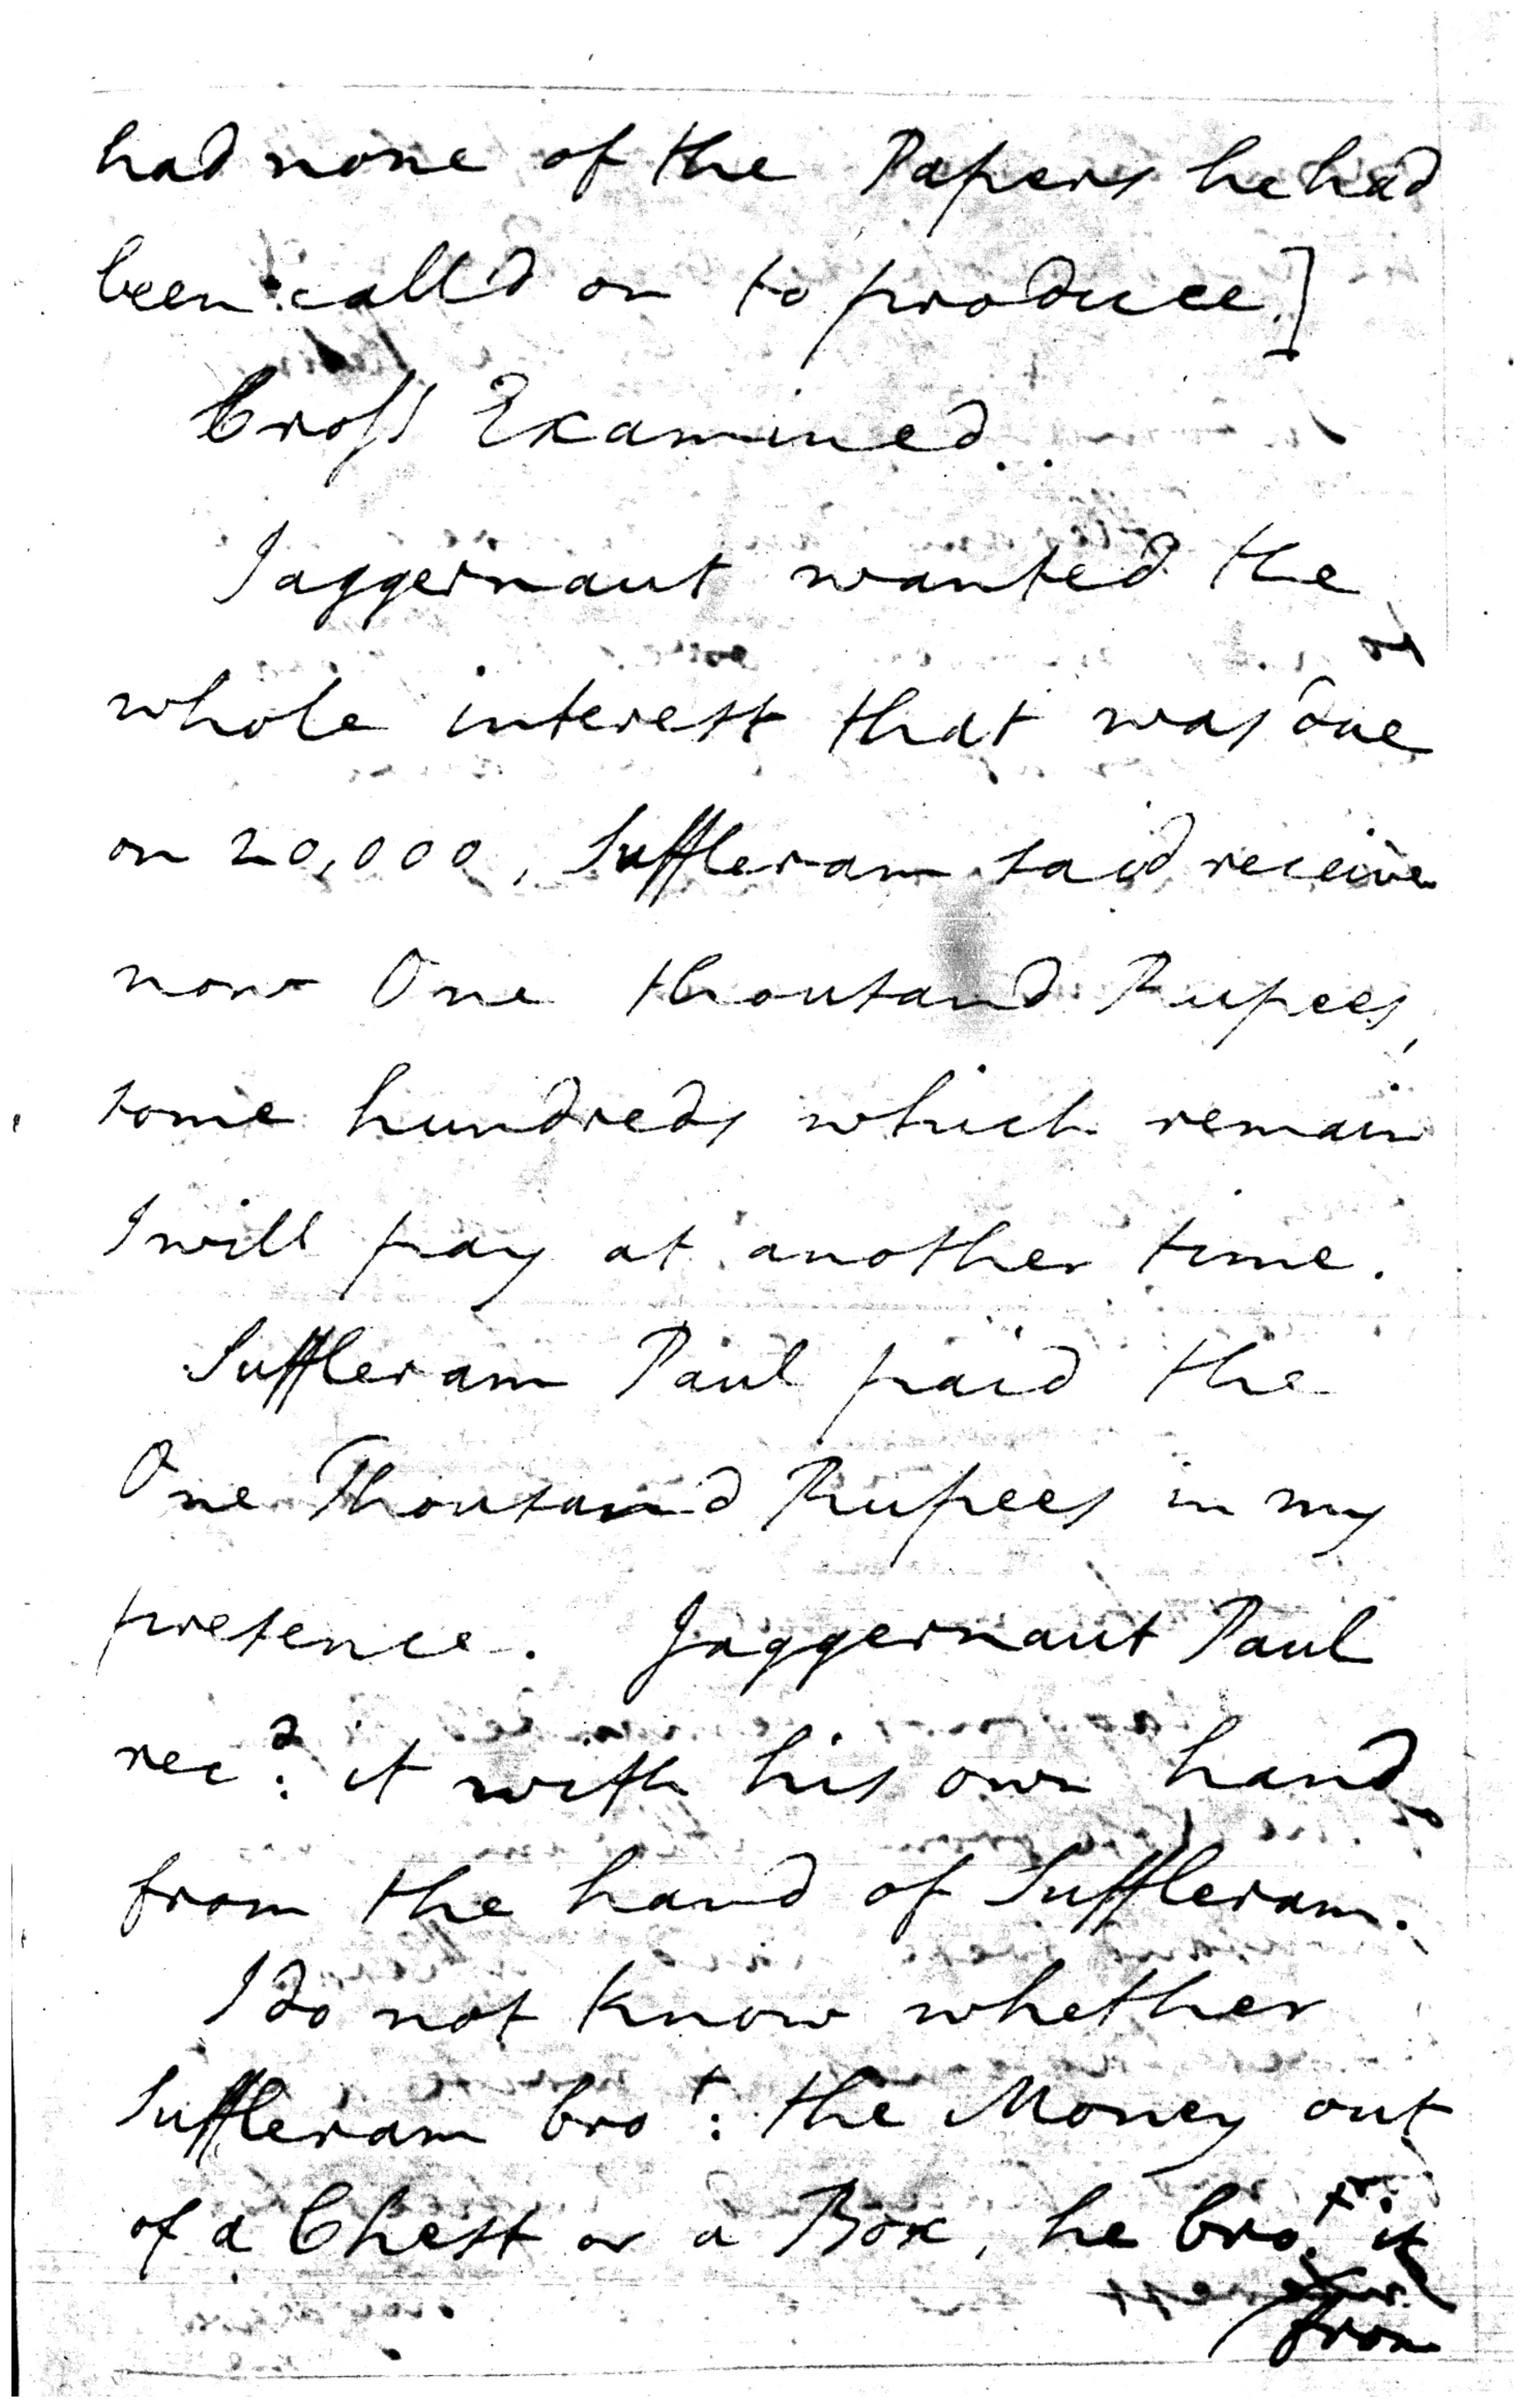 had none of the Papers he had
been call'd on to produce.]
Cross Examined.
Jaggernaut wanted the
whole interest that was due
on 20,000, Suffleram said receive
now One thousand Rupees,
some hundreds which remain
I will pay at another time.
Suffleram Paul paid the
One Thousand Rupees in my
presence. Jaggernaut Paul
rec.d it with his own hand
from the hand of Suffleram.
I do not know whether
Suffleram bro.t the Money out
of a Chest or a Box, he bro.t it
from